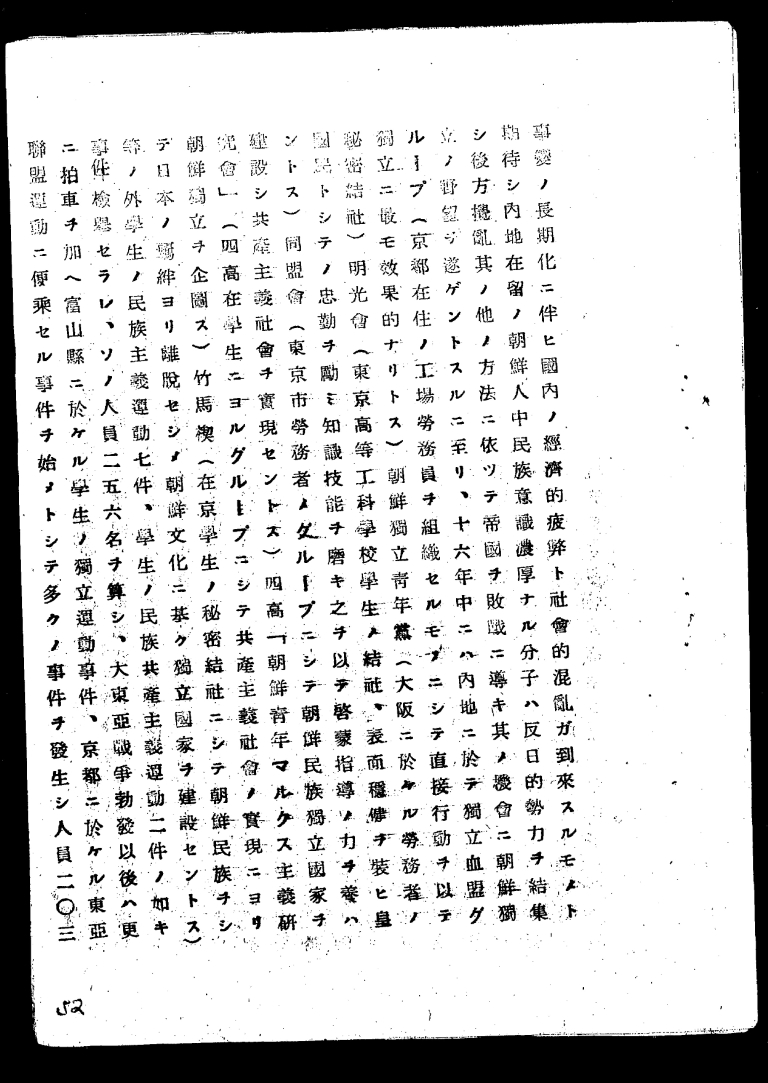 事變ノ長期化ニ伴ヒ國內ノ經濟的疲弊ト社會的混亂ガ到來スルモノト
期待シ內地在留ノ朝鮮人中民族意識濃厚ナル分子ハ反日的勢力ヲ結集
シ後方攪亂其ノ他ノ方法ニ依ツテ帝國ヲ敗戰ニ導キ其ノ機會ニ朝鮮獨
立ノ野望ヲ遂ゲントスルニ至リ、十六年中ニハ內地ニ於テ獨立血盟グ
ループ(京都在住ノ工場勞務員ヲ組織セルモノニシテ直接行動ヲ以テ
獨立ニ最モ效果的ナリトス)朝鮮獨立青年黨(大阪ニ於ケル勞務者ノ
秘密結社)明光會(東京高等工科學校學生ノ結社、表面穩健ヲ裝ヒ皇
國民トシテノ忠勤ヲ勵ミ知識技能ヲ磨キ之ヲ以テ啓蒙指導ノ力ヲ養ハ
ントス)同盟會(東京市勞務者ノグループニシテ朝鮮民族獨立國家ヲ
建設シ共產主義社會ヲ實現セントス)四高「朝鮮青年マルクス主義硏
究會」(四高在學生ニヨルグループニシテ共產主義社會ノ實現ニヨリ
朝鮮獨立ヲ企圖ス)竹馬楔(在京學生ノ秘密結社ニシテ朝鮮民族ヲシ
テ日本ノ羈絆ヨリ離脫セシメ朝鮮文化ニ基ク獨立國家ヲ建設セントス)
等ノ外學生ノ民族主義運動七件、學生ノ民族共產主義運動二件ノ如キ
事件檢擧セラレ、ソノ人員二五六名ヲ算シ、大東亞戰爭勃發以後ハ更
ニ拍車ヲ加ヘ富山縣ニ於ケル學生ノ獨立運動事件、京都ニ於ケル東亞
聯盟運動ニ便乘セル事件ヲ始メトシテ多クノ事件ヲ發生シ人員二〇三
52